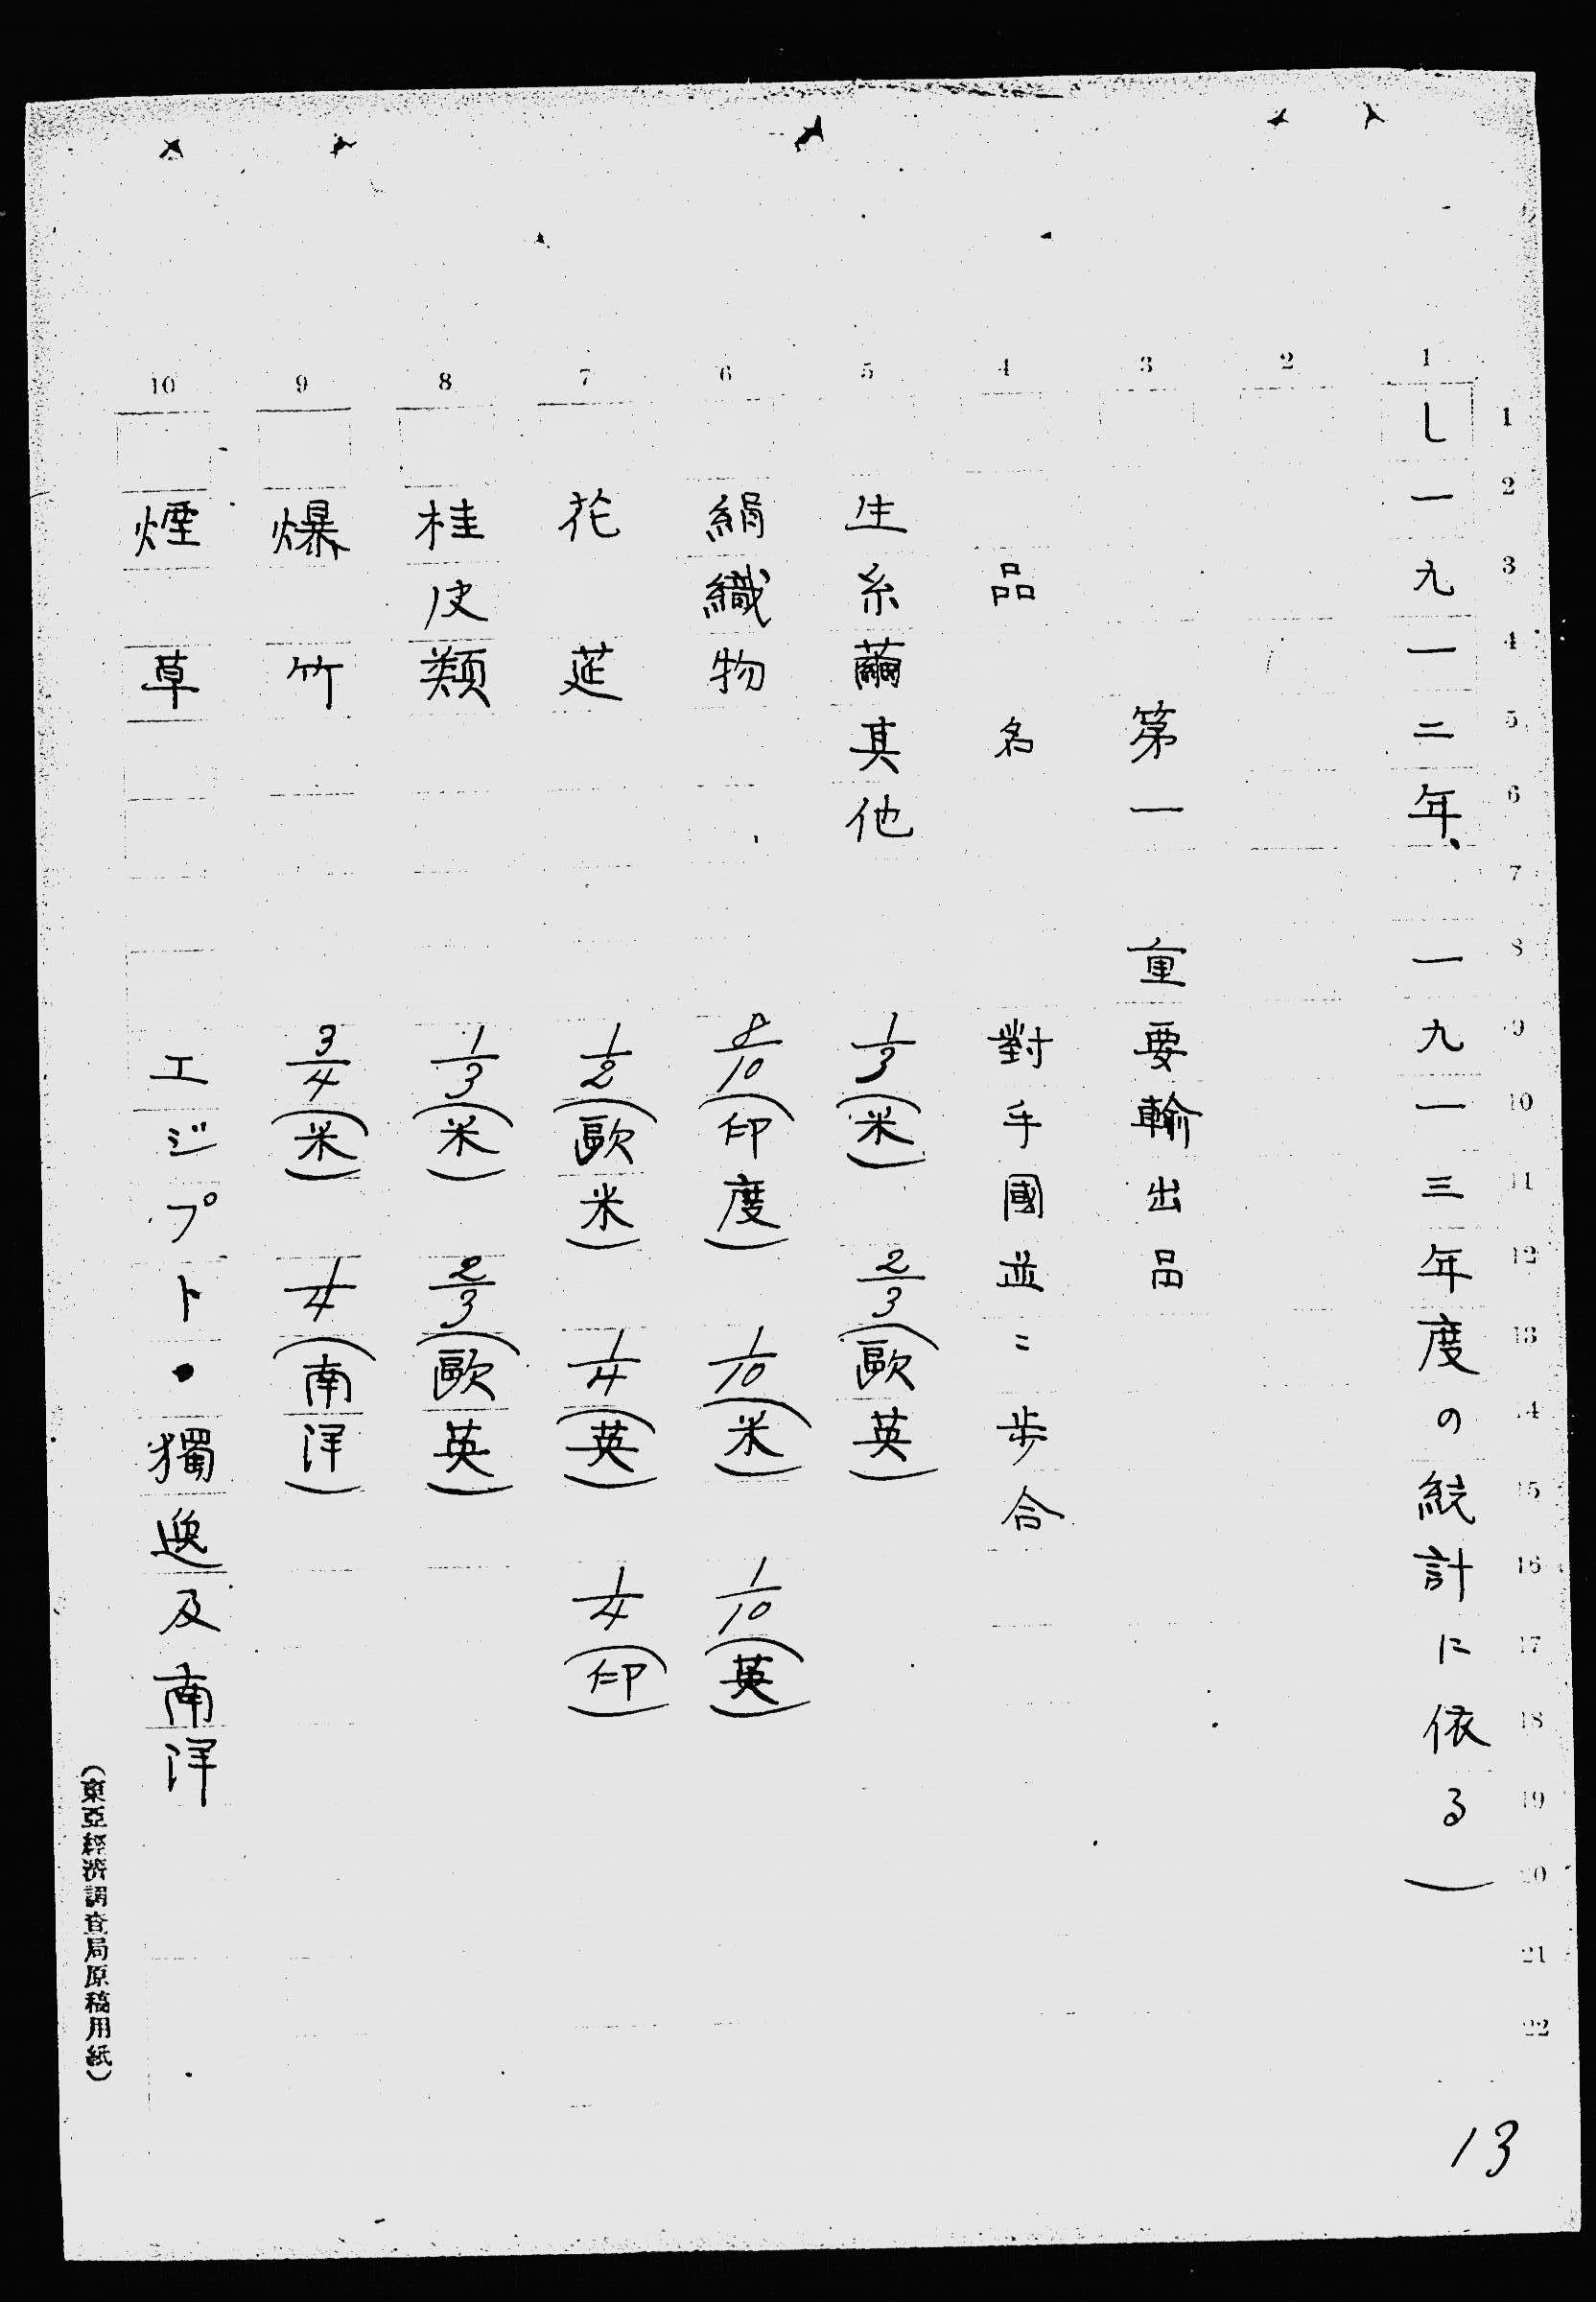 し一九一二年、一九一三年度の統計に依る)
第一 重要輸出品
品名 對手國並ニ歩合
生糸繭其他 1/3(米) 2/3(歐英)
絹織物 8/10(印度) 1/10(米) 1/10(英)
花莚 1/2(歐米) 1/4(英) 1/4(印)
桂皮類 1/3(米) 2/3(歐英)
爆竹 3/4(米) 1/4(南洋)
煙草 エジプト・獨逸及南洋
(東亞經濟調査局原稿用紙)
1 2 3 4 5 6 7 8 9 10
1 2 3 4 5 6 7 8 9 10 11 12 13 14 15 16 17 18 19 20 21 22
13